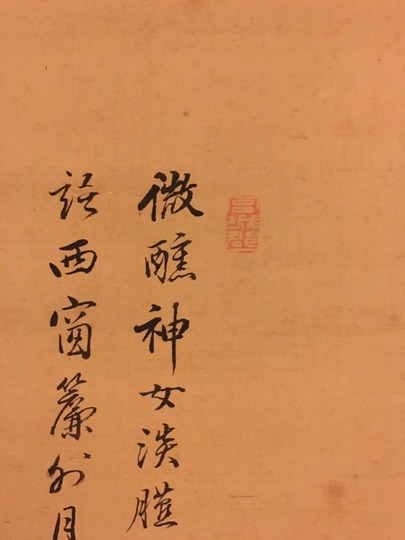 微醺神女淡
話西窗簾外月